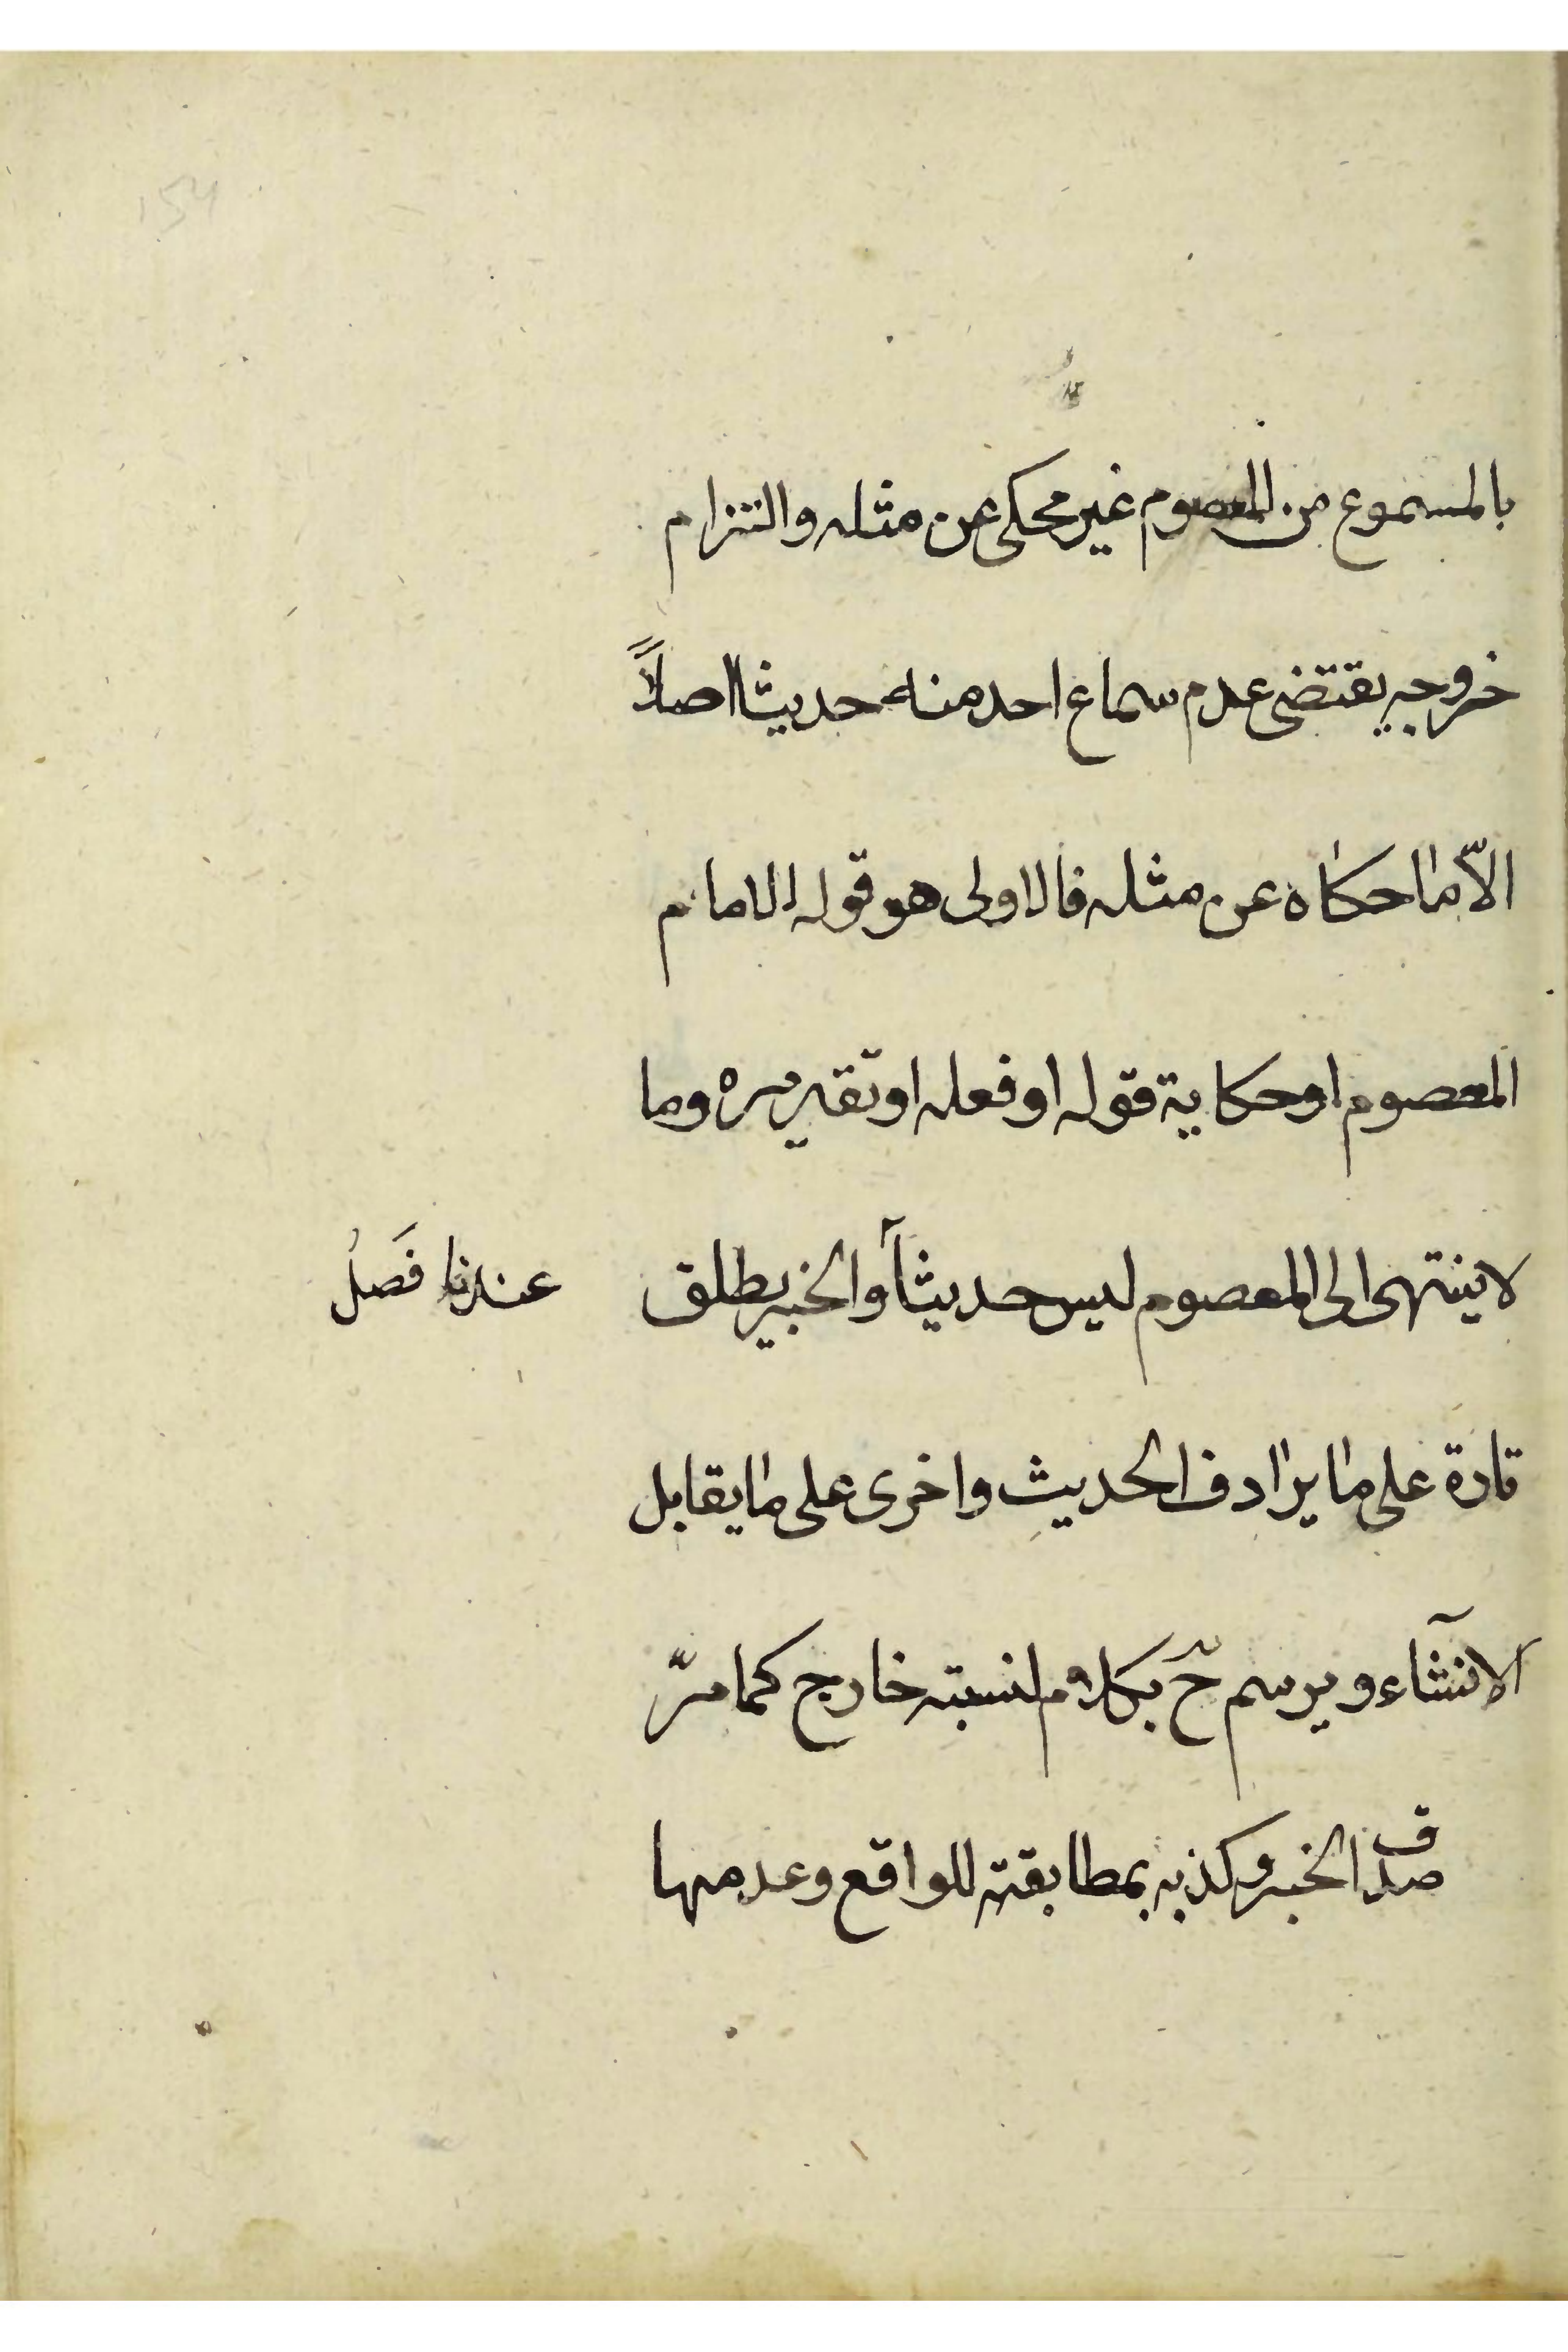 بالمسموع من المعصوم غير محكى عن مثله والتزام
خروجه يقتضى عدم سماع احد منه حديثا اصلاً
الاّ ما حكاه عن مثله فالاولى هو قوله الامام
المعصوم او حكاية قوله او فعله او تقريره وما
لا ينتهى الى المعصوم ليس حديثاً والخبر يطلق
عندنا فَصلُ
تارة على ما يرادف الحديث واخرى على ما يقابل
الانشآء ويرسم حّ بكلام لنسبته خارج كما مرّ
صدق الخبر وكذبه بمطابقته للواقع وعدمها